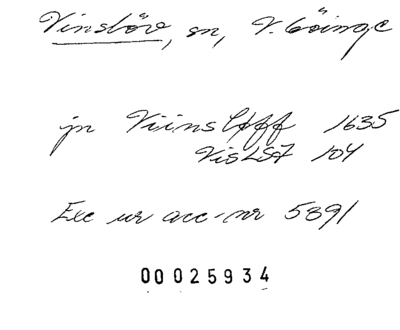 Vinslöv, sn, V. Göinge
jn Viinslöff 1635
VisLSA 104
Exc ur acc-nr 5891
00025934